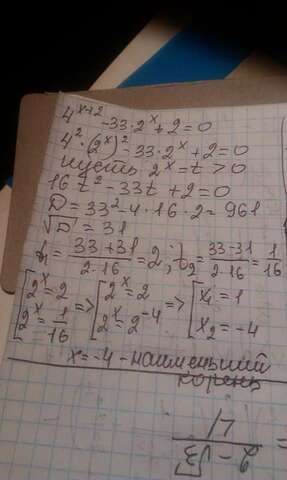 4^{x+2} - 33·2^x + 2 = 0
4^2·(2^x)^2 - 33·2^x + 2 = 0
пусть 2^x = t > 0
16t^2 - 33t + 2 = 0
D = 33^2 - 4·16·2 = 961
√D = 31
t_1 = \frac{33+31}{2·16} = 2; t_2 = \frac{33-31}{2·16} = \frac{1}{16}
[2^x = 2 => [2^x = 2 => [x_1 = 1
[2^x = \frac{1}{16} [2^x = 2^{-4} [x_2 = -4
x = -4 - наименьший
корень